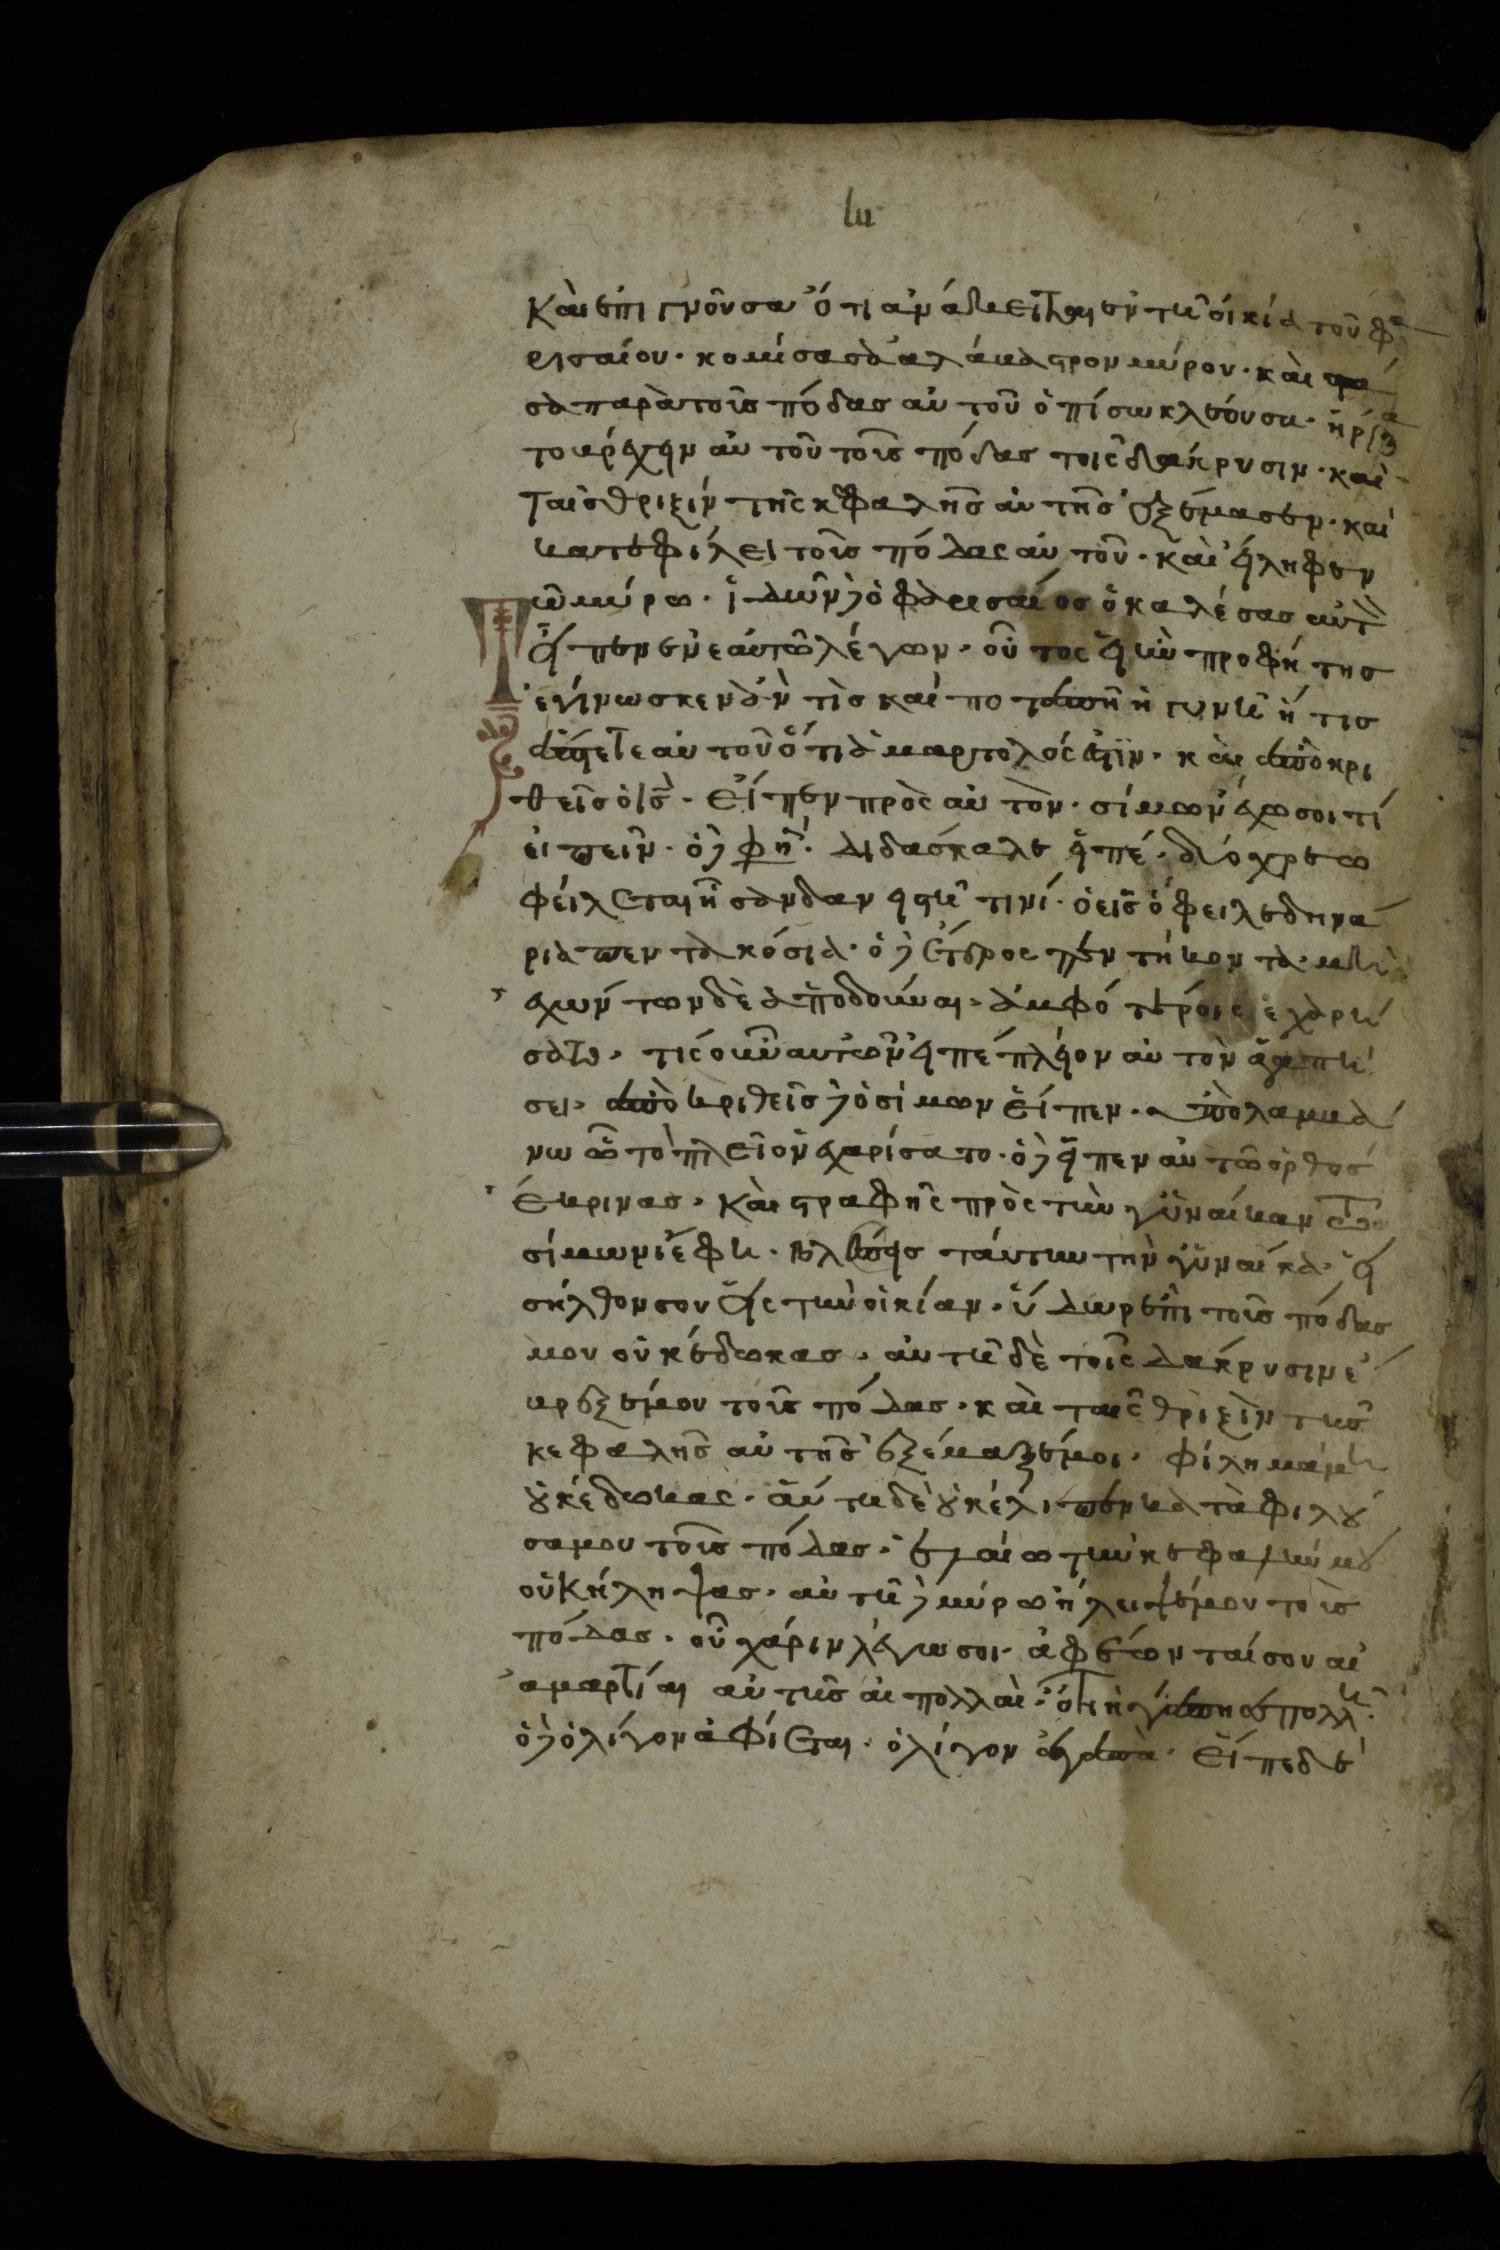 καὶ ἐπιγνοῦσα ὅτι ἀνάκειται ἐν τῆ οἰκία τοῦ φα
ρισαίου· κομίσασα ἀλάβαστρον μύρου· καὶ στά
σα παρὰ τοὺς πόδας αὐτοῦ ὀπίσω κλέουσα· ἤρξα
το βρέχην αὐτοῦ τοὺς πόδας τοῖς δάκρυσιν· καὶ
ταῖς θριξὶν τῆς κεφαλῆς αὐτῆς ἐξέμασεν· καὶ
κατεφίλει τοὺς πόδας αὐτοῦ· καὶ ἤληφεν
τῶ μύρω· ἰδὼν δὲ ὁ φαρισαίος ὁ καλέσας αὐτὸν
εἶπεν ἐν ἑαυτῶ λέγων· οὗτος εἰ ἦν προφήτης
ἐγίνωσκεν ἂν τὶς καὶ ποταπὴ ἡ γυνὴ ἥ τις
ἅπτεται αὐτοῦ ὅτι ἁμαρτολός ἐστιν· καὶ ἀποκρι
θεὶς ὁ ις· εἶπεν πρὸς αὐτὸν· σίμων ἔχω σοι τί
εἰπεῖν· ὁ δὲ φησί· διδάσκαλε εἰπέ· δύο χρεω
φείλεται ἦσαν δανειστῆ τινί· ὁ εἷς ὄφειλε δηνά
ρια πεντακόσια· ὁ δὲ ἕτερος πεντήκοντα· μὴ
ἐχών των δὲ ἀποδοῦναι· ἀμφοτέροις ἐχαρί
σατο· τις οὖν αὐτῶν εἰπέ πλεῖον αὐτὸν ἀγαπή
σει· ἀποκριθεὶς δὲ ὁ σίμων εἶπεν· ὑπολαμβά
νω ὧ τὸ πλεῖον ἐχαρίσατο· ὁ δὲ εἶπεν αὐτῶ ὀρθός
ἔκρινας· καὶ στραφῆς πρὸς τὴν γυναίκαν τῶ
σίμωνι ἔφη· βλέπεις ταύτην τὴν γυναίκα· εἰ
σήλθον σου εἰς τὴν οἰκίαν· ὕδωρ ἐπὶ τοὺς πόδας
μου οὐκ έδωκας· αὐτὴ δὲ τοῖς δάκρυσιν ἔ
βρεξέ μου τοὺς πόδας· καὶ ταῖς θριξὶν τῆς
κεφαλῆς αὐτῆς ἐξέμαξέ μοι· φίλημά μοι
οὐκ έδωκας· αὕτη δὲ οὐκ έλιπεν καταφιλοῦ
σα μου τοὺς πόδας· ἐλαίω τὴν κεφαλήν μου
οὐκ ήληψας· αὐτὴ δὲ μύρω ήλειψέ μου τοὺς
πόδας· οὗ χάριν λέγω σοι· ἀφέωνταί σου αἱ
ἁμαρτίαι αὐτῆς αἱ πολλαὶ· ὅτι ἠγάπησε πολλὺ·
ὁ δὲ ὀλίγον ἀφίεται· ὀλίγον ἀγαπὰ· εἶπε δὲ